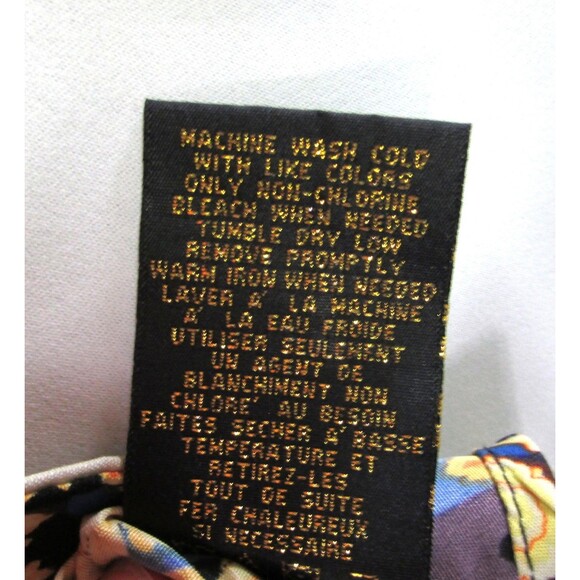 MACHINE WASH COLD
WITH LIKE COLORS
ONLY NON-CHLORINE
BLEACH WHEN NEEDED
TUMBLE DRY LOW
REMOVE PROMPTLY
WARM IRON WHEN NEEDED
LAVER A' LA MACHINE
A' LA EAU FROIDE
UTILISER SEULEMENT
UN AGENT DE
BLANCHIMENT NON
CHLORE' AU BESOIN
FAITES SECHER A' BASSE
TEMPERATURE ET
RETIREZ-LES
TOUT DE SUITE
FER CHALEUREUX
SI NECESSAIRE